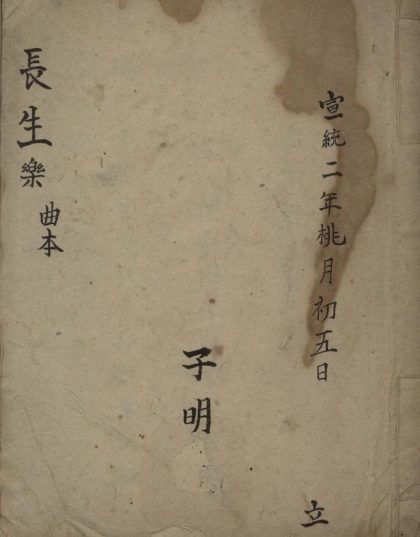 宣統二年桃月初五日
立
子明
長生樂曲本